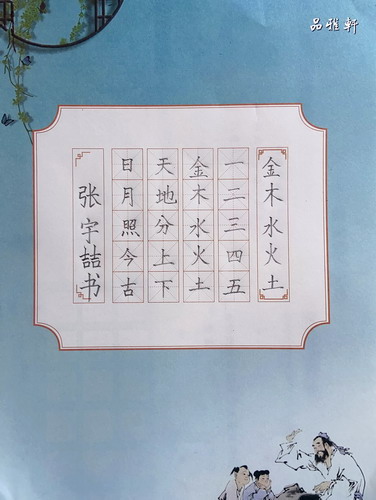 品雅軒
金木水火土
一二三四五
金木水火土
天地分上下
日月照今古
张宇喆书